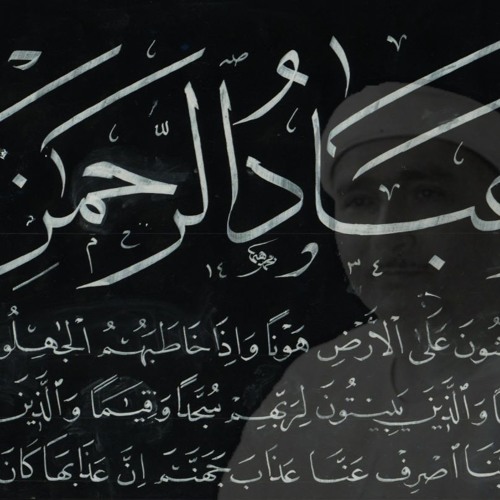 عِبَادُ الرَّحْمَنِ
١٤ ٣٤
ـونَ عَلَى الْأَرْضِ هَوْنًا وَإِذَا خَاطَبَهُمُ الْجَٰهِلُو
ا وَالَّذِينَ يَبِيتُونَ لِرَبِّهِمْ سُجَّدًا وَقِيَٰمًا وَالَّذِينَ
نَا اصْرِفْ عَنَّا عَذَابَ جَهَنَّمَ إِنَّ عَذَابَهَا كَانَ